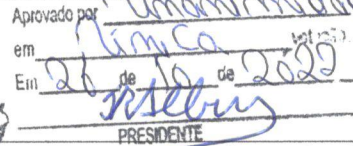 Aprovado por Unanimidade
em Única votação
Em 26 de 10 de 2022
PRESIDENTE